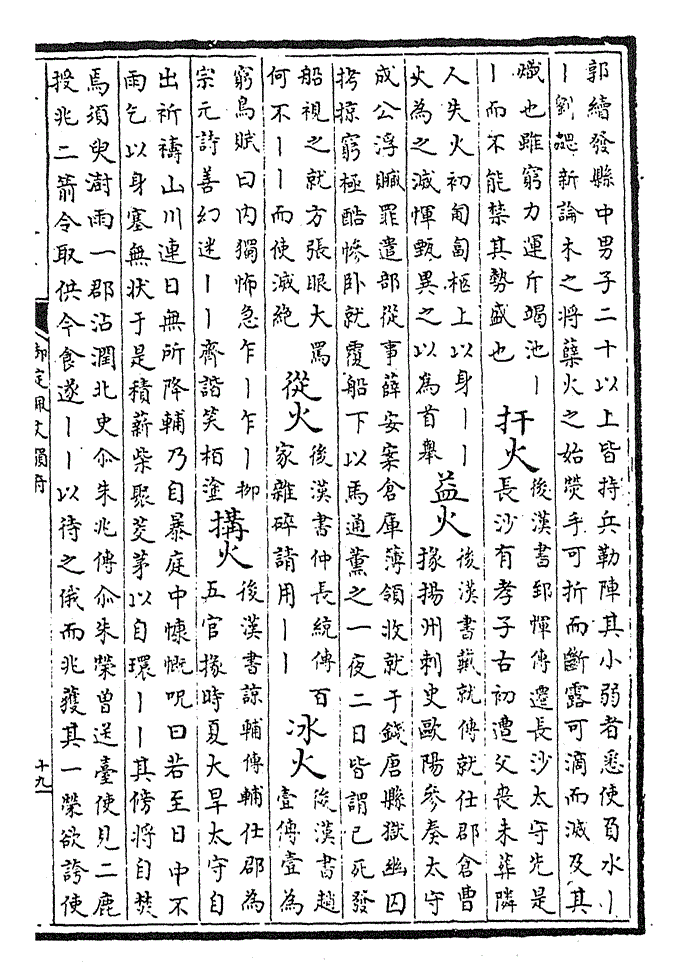 郭續發縣中男子二十以上皆持兵勒陣其小弱者悉使負水丨
丨劉勰新論木之將蘖火之始熒手可折而斷露可滴而滅及其
熾也雖窮力運斤竭池丨
丨而不能禁其勢盛也
扞火
後漢書郅惲傳遷長沙太守先是
長沙有孝子古初遭父喪未葬隣
人失火初匍匐柩上以身丨丨
火為之滅惲甄異之以為首舉
益火
後漢書戴就傳就仕郡倉曹
掾揚州刺史歐陽參奏太守
成公浮贓罪遣部從事薛安案倉庫簿領收就于錢唐縣獄幽囚
拷掠窮極酷慘卧就覆船下以馬通薰之一夜二日皆謂已死發
船視之就方張眼大罵
何不丨丨而使滅絶
從火
後漢書仲長統傳百
家雜碎請用丨丨
冰火
後漢書趙
壹傳壹為
窮鳥賦曰内獨怖急乍丨乍丨柳
宗元詩善幻迷丨丨齊諧笑栢塗
搆火
後漢書諒輔傳輔仕郡為
五官掾時夏大旱太守自
出祈禱山川連日無所降輔乃自暴庭中慷慨呪曰若至日中不
雨乞以身塞無狀于是積薪柴聚茭茅以自環丨丨其傍將自焚
焉須臾澍雨一郡沾潤北史尒朱兆傳尒朱榮曾送臺使見二鹿
授兆二箭令取供今食遂丨丨以待之俄而兆獲其一榮欲誇使
御定佩文韻府
十九